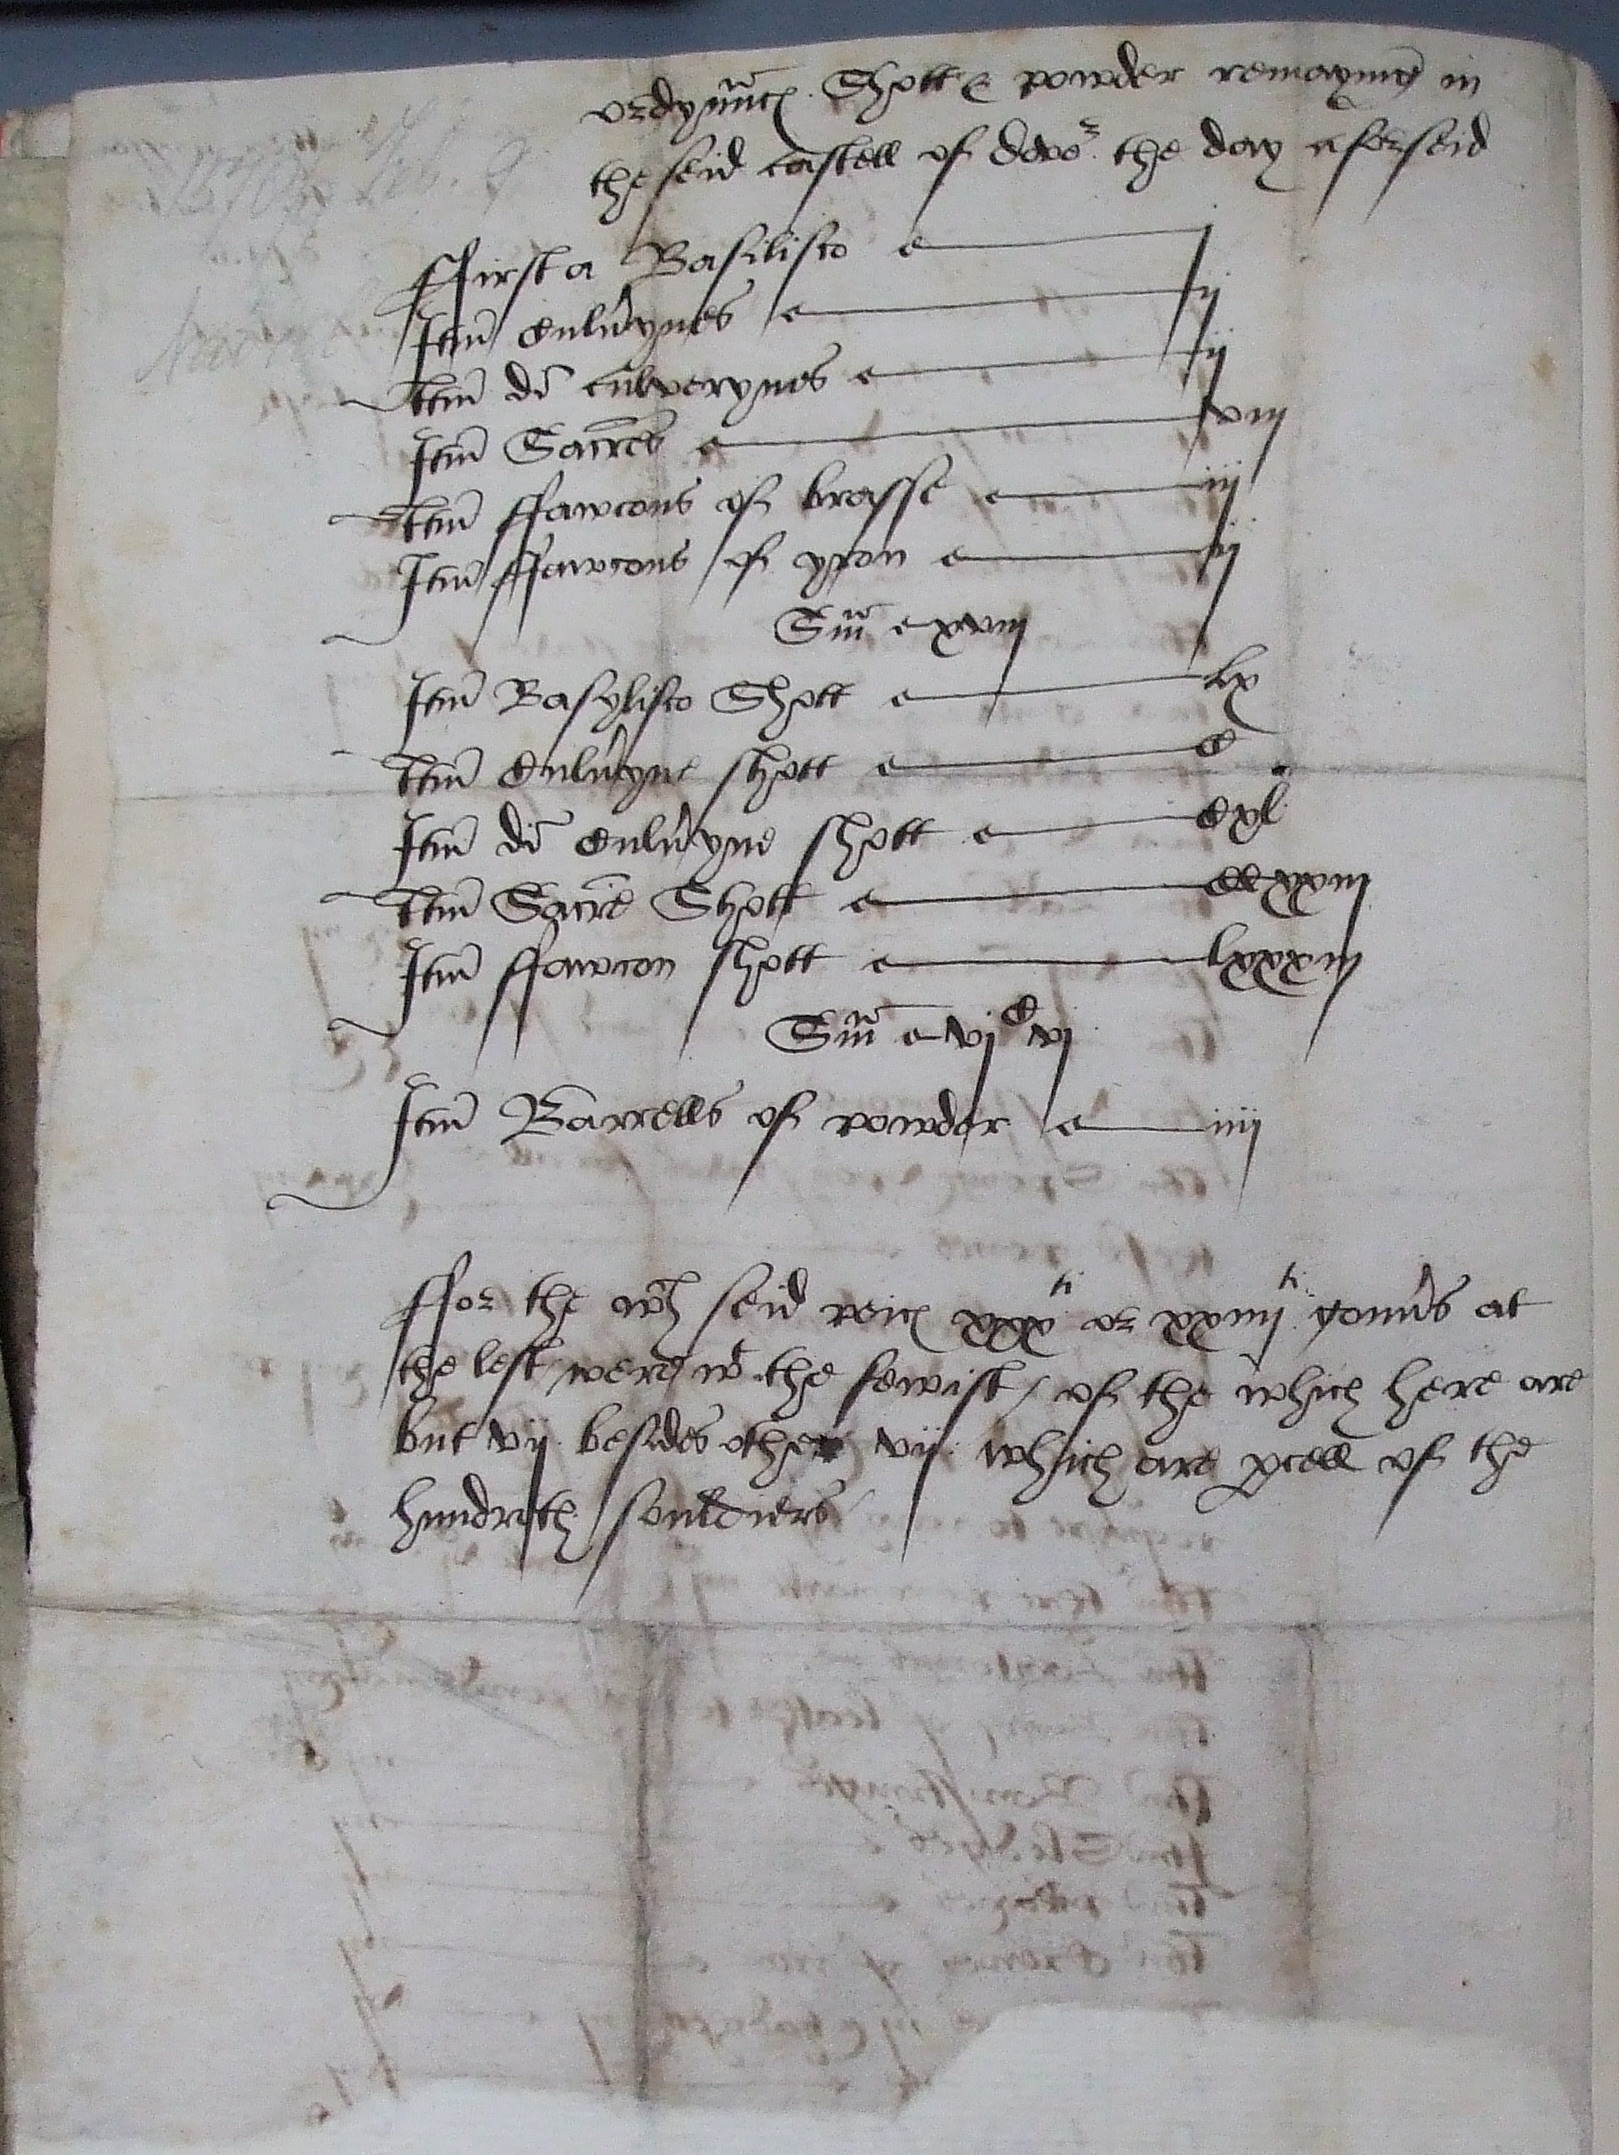 ordynnce Shott & powder remaynīg in
the seid castell of Dovor the day aforseid
ffirst a Basilisco j
Itm̄ Culūynes ij
Itm̄ di culverynes ij
Itm̄ Sacres viij
Itm̄ ffawcons of brasse iij
Itm̄ ffawcons of yron ij
Sm̄ xviij
Itm̄ Basylisco Shott lx
Itm̄ Culūyne shott C
Itm̄ di Culūyne shott Cxl
Itm̄ Sacre Shott CCxxiij
Itm̄ ffawcon shott lxxxiij
Sm̄ vjC vj
Itm̄ Barrells of powder iiij
ffor the wch seid peic xxxti or xxiiijti gonn̄s at
the lest were wt the fewist / of the which here are
but vij besides other vij which are pcell of the
hundreth souldiers